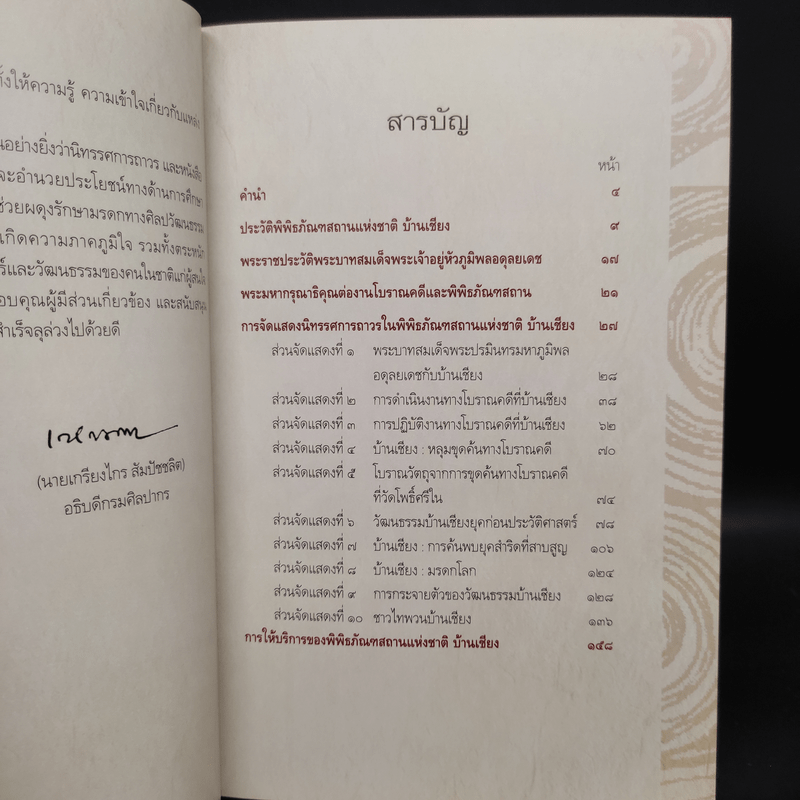 ให้ความรู้ ความเข้าใจเกี่ยวกับแหล่ง
นอย่างยิ่งว่านิทรรศการถาวร และหนังสือ
จะอำนวยประโยชน์ทางด้านการศึกษา
ช่วยผดุงรักษามรดกทางศิลปวัฒนธรรม
เกิดความภาคภูมิใจ รวมทั้งตระหนัก
ร์และวัฒนธรรมของคนในชาติแก่ผู้สนใจ
อบคุณผู้มีส่วนเกี่ยวข้อง และสนับสนุน
สำเร็จลุล่วงไปด้วยดี
(นายเกรียงไกร สัมปัชชลิต)
อธิบดีกรมศิลปากร
สารบัญ
หน้า
คำนำ ๔
ประวัติพิพิธภัณฑสถานแห่งชาติ บ้านเชียง ๙
พระราชประวัติพระบาทสมเด็จพระเจ้าอยู่หัวภูมิพลอดุลยเดช ๑๗
พระมหากรุณาธิคุณต่องานโบราณคดีและพิพิธภัณฑสถาน ๒๑
การจัดแสดงนิทรรศการถาวรในพิพิธภัณฑสถานแห่งชาติ บ้านเชียง ๒๗
ส่วนจัดแสดงที่ ๑ พระบาทสมเด็จพระปรมินทรมหาภูมิพล
อดุลยเดชกับบ้านเชียง ๒๘
ส่วนจัดแสดงที่ ๒ การดำเนินงานทางโบราณคดีที่บ้านเชียง ๓๘
ส่วนจัดแสดงที่ ๓ การปฏิบัติงานทางโบราณคดีที่บ้านเชียง ๖๒
ส่วนจัดแสดงที่ ๔ บ้านเชียง : หลุมขุดค้นทางโบราณคดี ๗๐
ส่วนจัดแสดงที่ ๕ โบราณวัตถุจากการขุดค้นทางโบราณคดี
ที่วัดโพธิ์ศรีใน ๗๔
ส่วนจัดแสดงที่ ๖ วัฒนธรรมบ้านเชียงยุคก่อนประวัติศาสตร์ ๗๘
ส่วนจัดแสดงที่ ๗ บ้านเชียง : การค้นพบยุคสำริดที่สาบสูญ ๑๐๖
ส่วนจัดแสดงที่ ๘ บ้านเชียง : มรดกโลก ๑๒๔
ส่วนจัดแสดงที่ ๙ การกระจายตัวของวัฒนธรรมบ้านเชียง ๑๒๘
ส่วนจัดแสดงที่ ๑๐ ชาวไทพวนบ้านเชียง ๑๓๖
การให้บริการของพิพิธภัณฑสถานแห่งชาติ บ้านเชียง ๑๕๘